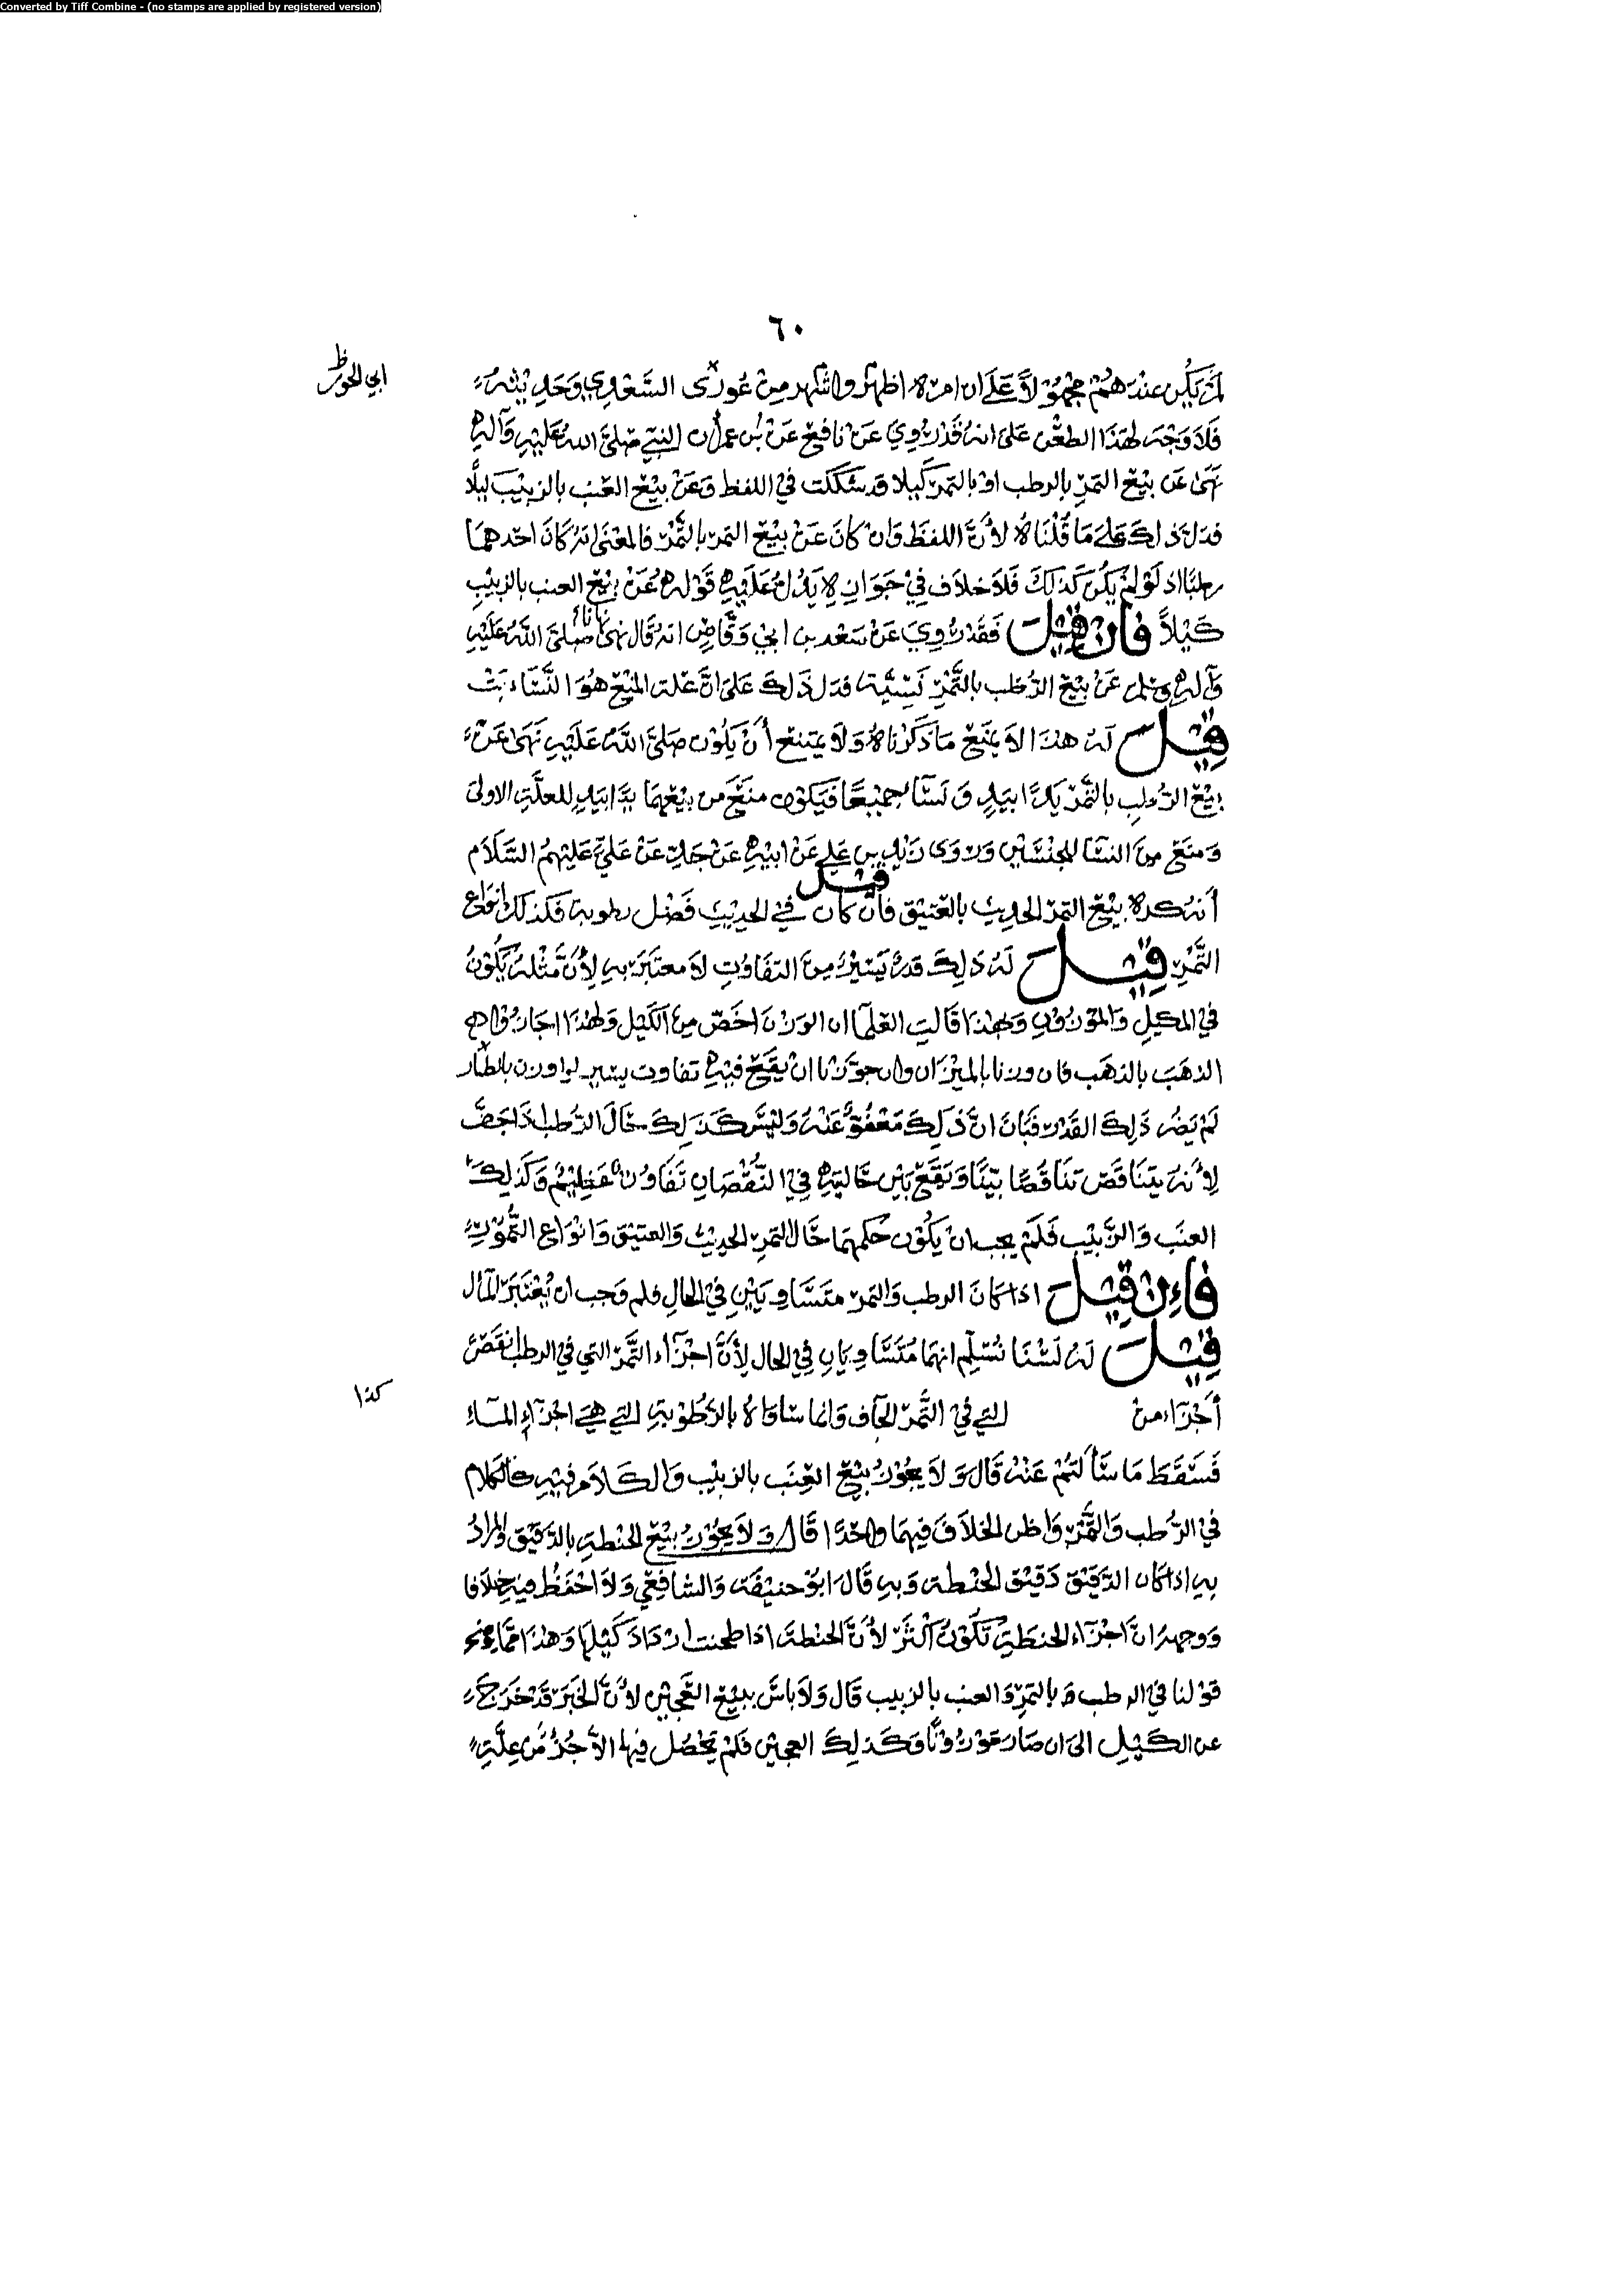 Converted by Tiff Combine - (no stamps are applied by registered version)
٦٠
لم يكن عندهم مجهولا على ان امره اظهر واشهر من السعدي وحديثه
ابي الحور ظ
فلا وجه لهذا الطعن على انه قد روي عن نافع عن بن عمر ان النبي صلى الله عليه وآله
نهى عن بيع التمر بالرطب او بالتمر كيلا قد شككت في اللفظ وعن بيع العنب بالزبيب كيلا
فدل ذلك على ما قلناه لأن اللفظ وان كان عن بيع التمر بالتمر فالمعنى انه كان احدهما
رطبا اذ لو لم يكن كذلك فلا خلاف في جوازه يدل عليه قوله عن بيع العنب بالزبيب
كيلا فان قيل فقد روي عن سعد بن ابي وقاص انه قال نهى صلى الله عليه
وآله وسلم عن بيع الرطب بالتمر نسيئة فدل ذلك على انّ علة المنع هو النساء
قيل له هذا لا يمنع ما ذكرناه ولا يمتنع أن يكون صلى الله عليه نهى عن
بيع الرطب بالتمر يدا بيد ونسا جميعا فيكون منع من بيعهما يدا بيد للعلة الاولى
ومنع من النسا للجنسين وروى زيد بن علي عن ابيه عن جده عن علي عليهم السلام
أنه كره بيع التمر الحديث بالعتيق فان قيل كان في الحديث فضل رطوبة فكذلك انواع
التمر قيل له ذلك قدر يسير من التفاوت لا معتبر به لأن مثله يكون
في المكيل والموزون ولهذا قالت العلمآ ان الوزن اخص من الكيل ولهذا اجازوا
الذهب بالذهب فان وزنا بالميزان وان جوزنا ان يقع فيه تفاوت يسير لو اوزن بالطيار
لم يضر ذلك القدر فبان انّ ذلك معفو عنه وليس كذلك حال الرطب اذا جف
لأنه يتناقص تناقصا بيّنا ويقع بين حاليه في النقصان تفاوت عظيم وكذلك
العنب والزبيب فلم يجب ان يكون حكمهما حال التمر الحديث والعتيق وانواع التمور
فاءن قيل اذا كان الرطب والتمر متساويين في الحال فلم وجب ان يعتبر المآل
قيل له لسنا نسلم انهما متساويان في الحال لأن اجزآء التمر التي في الرطب انقص
أجزآء من التي في التمر الجآف وانما ساواه بالرطوبة التي هي اجزآء المآء
كذا
فسقط ما سألتم عنه قال ولا يجوز بيع العنب بالزبيب والكلام فيه كالكلام
في الرطب والتمر واظن الخلاف فيهما واحدا قال ولا يجوز بيع الحنطة بالدقيق والمراد
به اذا كان الدقيق دقيق الحنطة وبه قال ابو حنيفة والشافعي ولا احفظ فيه خلافا
ووجهه ان اجزآء الحنطة تكون اكثر لأن الحنطة اذا طحنت ازداد كيلها وهذا مما
قولنا في الرطب و بالتمر والعنب بالزبيب قال ولا باس ببيع العجين لأن الخبز قد خرج
عن الكيل الى ان صار موزونا وكذلك العجين فلم يحصل فيها الا جزء من علة